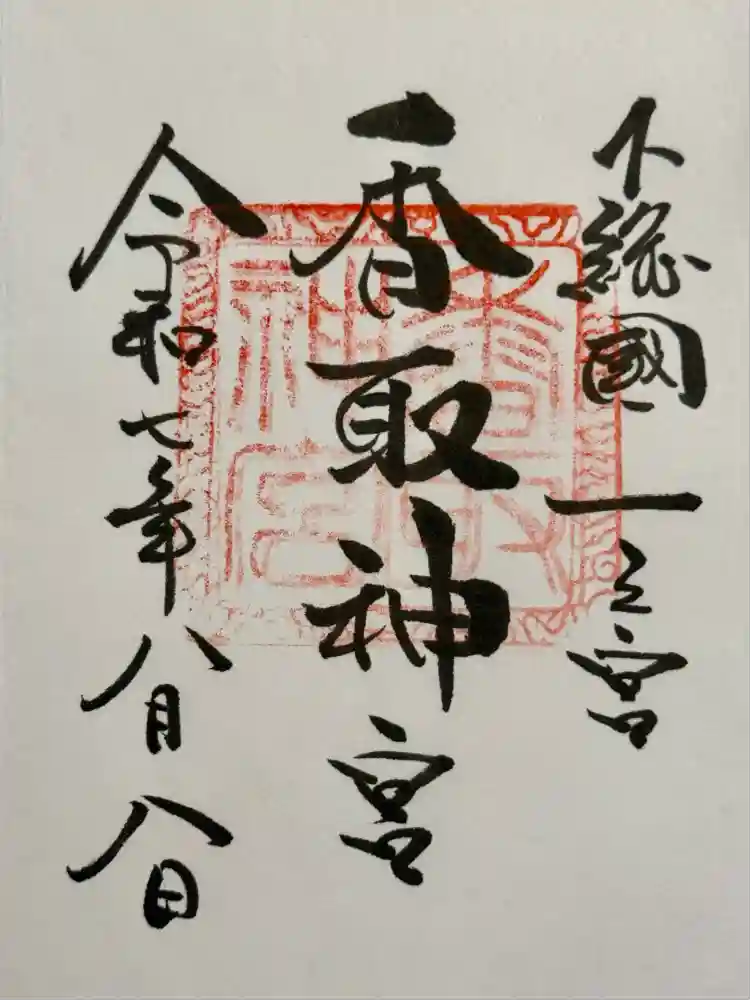 下総國一之宮
香取神宮
令和七年八月八日
香取神宮